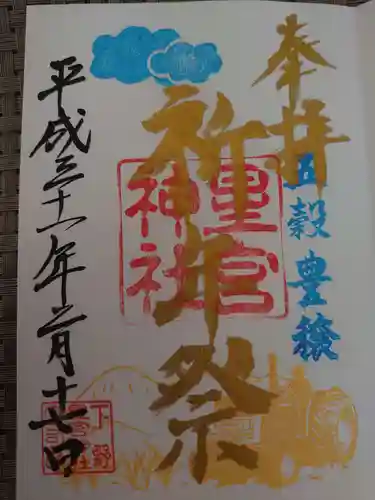 奉拝
五穀豊穣
祈年祭
星宮
神社
平成三十一年二月十七日
下野